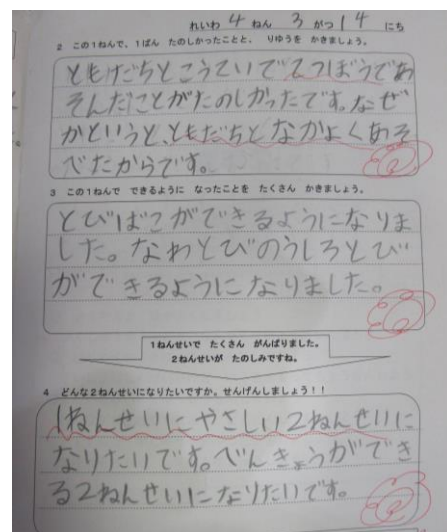 れいわ 4 ねん 3 がつ 14 にち
2 この1ねんで、1ばん たのしかったことと、りゆうを かきましょう。
ともだちとこうていでてつぼうであ
そんだことがたのしかったです。なぜ
かというと、ともだちとなかよくあそ
べたからです。
3 この1ねんで できるように なったことを たくさん かきましょう。
とびばこができるようになりま
した。なわとびのうしろとび
ができるようになりました。
1ねんせいで たくさん がんばりました。
2ねんせいが たのしみですね。
4 どんな2ねんせいになりたいですか。せんげんしましょう!!
1ねんせいにやさしい2ねんせいに
なりたいです。べんきょうができ
る2ねんせいになりたいです。